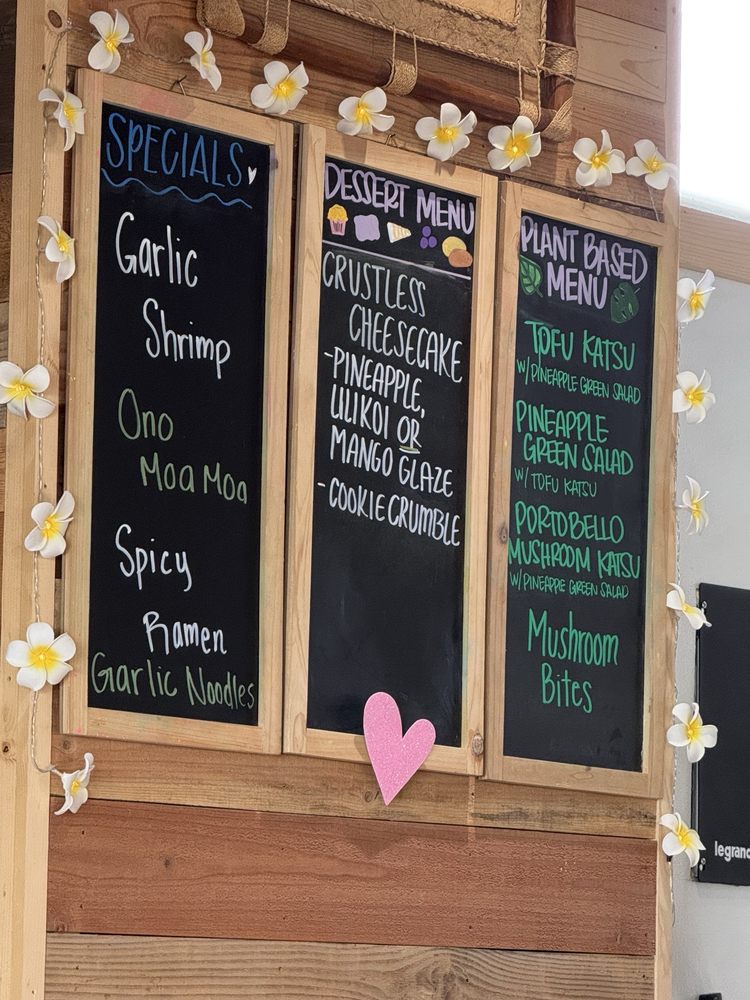 SPECIALS
Garlic
Shrimp
Ono
Moa Moa
Spicy
Ramen
Garlic Noodles
DESSERT MENU
CRUSTLESS
CHEESECAKE
-PINEAPPLE,
LILIKOI OR
MANGO GLAZE
-COOKIE CRUMBLE
PLANT BASED
MENU
TOFU KATSU
W/ PINEAPPLE GREEN SALAD
PINEAPPLE
GREEN SALAD
W/ TOFU KATSU
PORTOBELLO
MUSHROOM KATSU
W/ PINEAPPLE GREEN SALAD
Mushroom
Bites